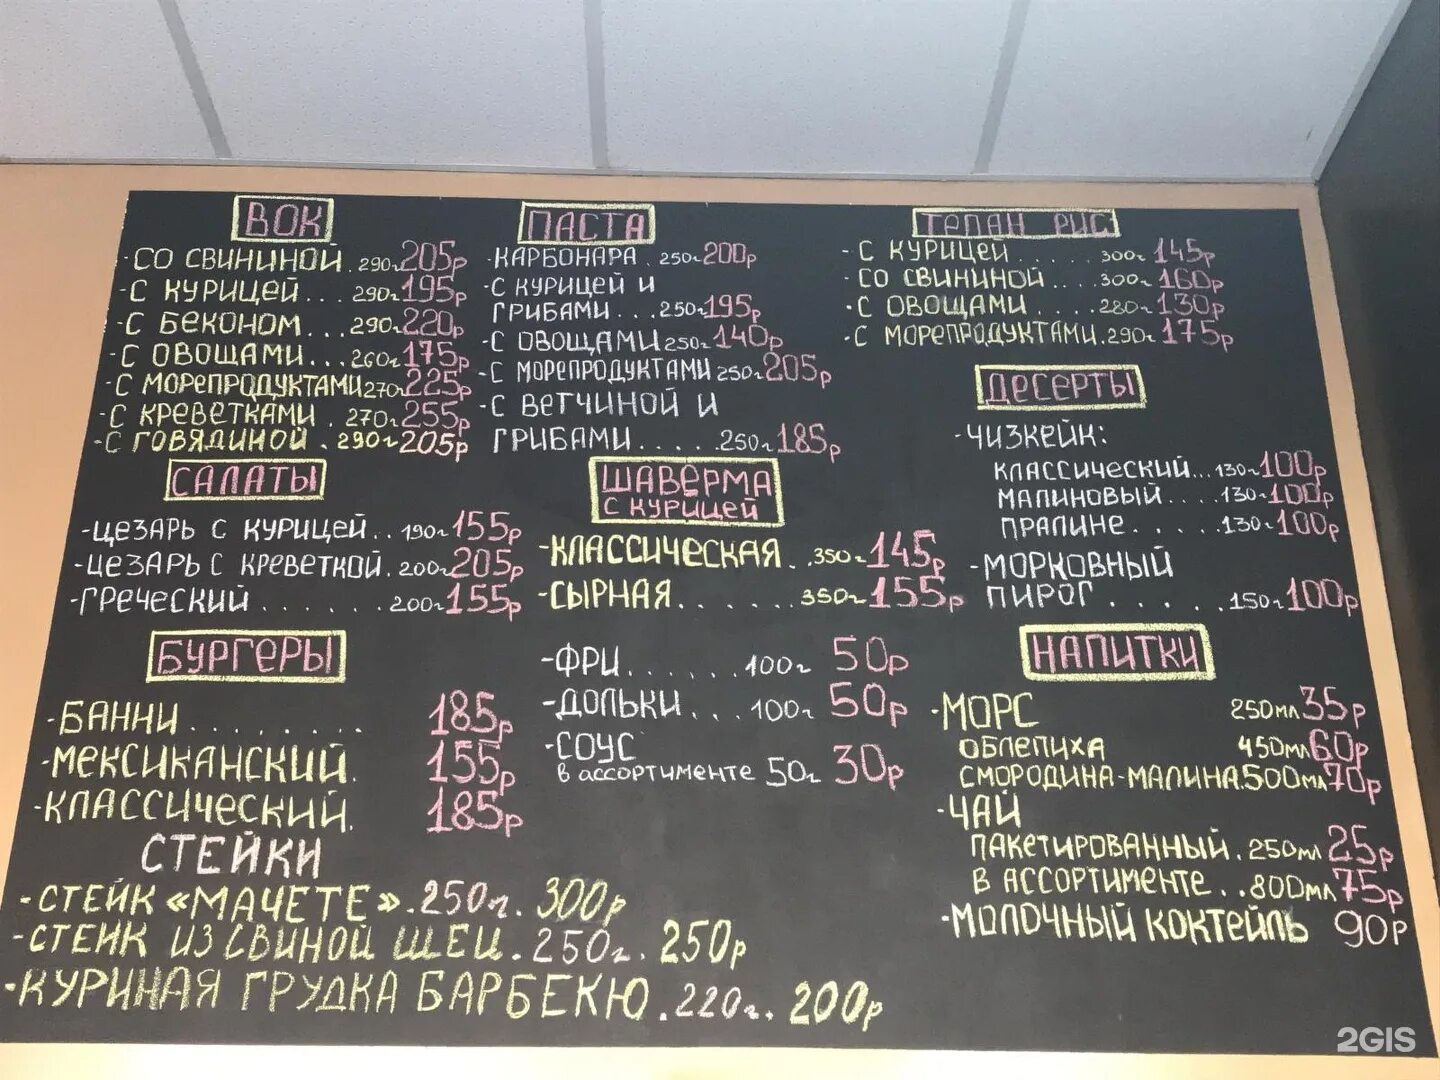 ВОК
·СО СВИНИНОЙ.290г205р
·С КУРИЦЕЙ...290г195р
·С БЕКОНОМ...290г220р
·С ОВОЩАМИ...260г175р
·С МОРЕПРОДУКТАМИ270г225р
·С КРЕВЕТКАМИ.270г255р
·С ГОВЯДИНОЙ.290г205р
ПАСТА
·КАРБОНАРА.250г200р
·С КУРИЦЕЙ И
ГРИБАМИ...250г195р
·С ОВОЩАМИ250г140р
·С МОРЕПРОДУКТАМИ250г205р
·С ВЕТЧИНОЙ И
ГРИБАМИ.....250г185р
ТЯПАН РИС
·С КУРИЦЕЙ.....300г145р
·СО СВИНИНОЙ....300г160р
·С ОВОЩАМИ....280г130р
·С МОРЕПРОДУКТАМИ.290г175р
ДЕСЕРТЫ
·ЧИЗКЕЙК:
КЛАССИЧЕСКИЙ...130г100р
МАЛИНОВЫЙ....130г100р
ПРАЛИНЕ.....130г100р
·МОРКОВНЫЙ
ПИРОГ......150г100р
САЛАТЫ
-ЦЕЗАРЬ С КУРИЦЕЙ..190г155р
-ЦЕЗАРЬ С КРЕВЕТКОЙ.200г205р
-ГРЕЧЕСКИЙ......200г155р
ШАВЕРМА
С КУРИЦЕЙ
-КЛАССИЧЕСКАЯ..350г145р
-СЫРНАЯ......350г155р
-ФРИ......100г 50р
-ДОЛЬКИ....100г 50р
-СОУС
В АССОРТИМЕНТЕ 50г 30р
БУРГЕРЫ
-БАННИ........185р
-МЕКСИКАНСКИЙ. 155р
-КЛАССИЧЕСКИЙ. 185р
НАПИТКИ
·МОРС 250мл35р
ОБЛЕПИХА 450мл60р
СМОРОДИНА-МАЛИНА500мл70р
·ЧАЙ
ПАКЕТИРОВАННЫЙ.250мл25р
В АССОРТИМЕНТЕ..800мл75р
·МОЛОЧНЫЙ КОКТЕЙЛЬ 90р
СТЕЙКИ
-СТЕЙК «МАЧЕТЕ».250г.300р
-СТЕЙК ИЗ СВИНОЙ ШЕИ.250г.250р
-КУРИНАЯ ГРУДКА БАРБЕКЮ.220г.200р
2GIS